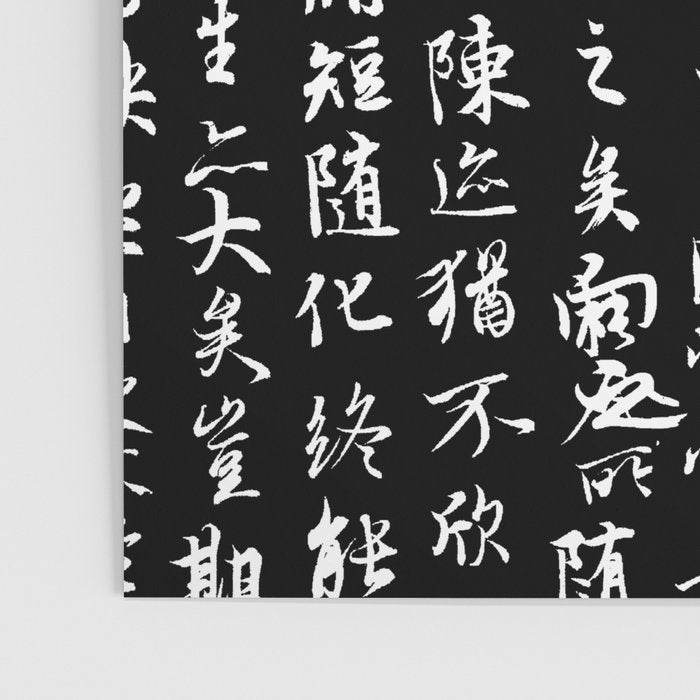 之矣向之所隨
陳迹猶不欣
脩短隨化終能
生亦大矣豈期